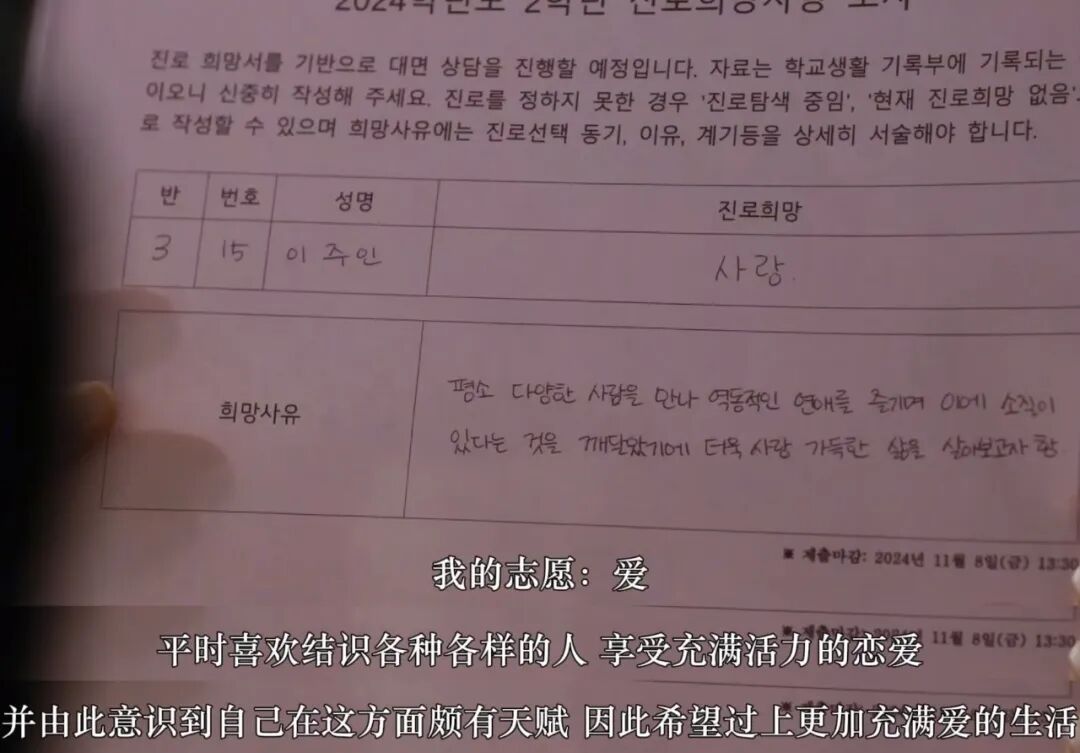 2024학년도 2학년 진로희망사항 조사
진로 희망서를 기반으로 대면 상담을 진행할 예정입니다. 자료는 학교생활 기록부에 기록되는
이오니 신중히 작성해 주세요. 진로를 정하지 못한 경우 '진로탐색 중임', '현재 진로희망 없음'
로 작성할 수 있으며 희망사유에는 진로선택 동기, 이유, 계기등을 상세히 서술해야 합니다.
반 번호 성명 진로희망
3 15 이주인 사랑.
희망사유
평소 다양한 사람을 만나 역동적인 연애를 즐기며 이에 소질이
있다는 것을 깨달았기에 더욱 사랑 가득한 삶을 살아보고자 함
※ 제출마감: 2024년 11월 8일(금) 13:30
我的志愿：爱
※ 제출마감: 2024년 11월 8일(금) 13:30
平时喜欢结识各种各样的人 享受充满活力的恋爱
并由此意识到自己在这方面颇有天赋 因此希望过上更加充满爱的生活